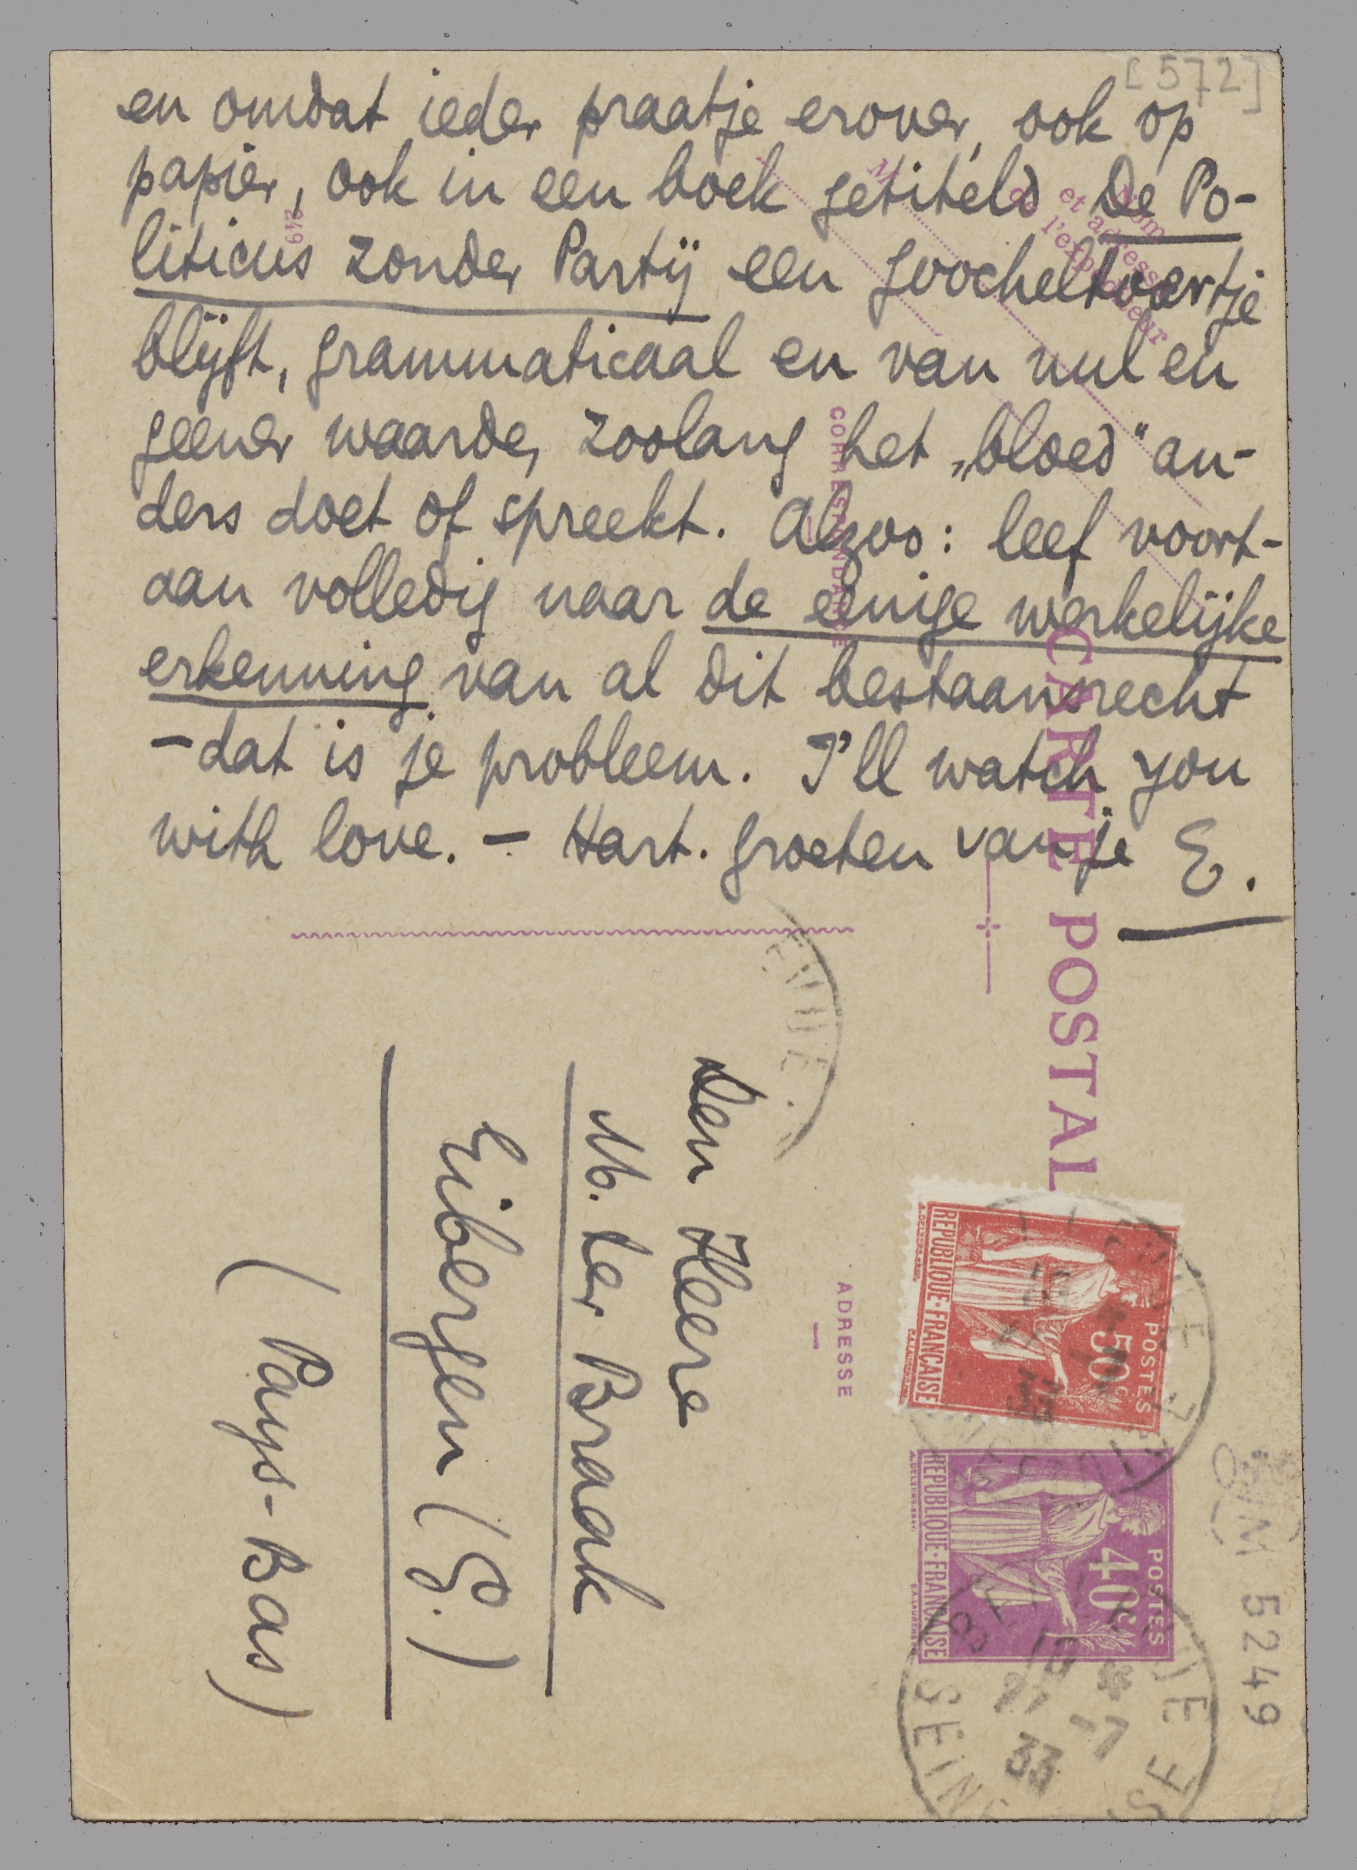 [572]
en omdat ieder praatje erover, ook op
papier, ook in een boek getiteld De Po-
liticus zonder Partij een goocheltoertje
blijft, grammaticaal en van nul en
geener waarde, zoolang het „bloed" an-
ders doet of spreekt. Alzoo: leef voort-
aan volledig naar de eenige werkelijke
erkenning van al dit bestaansrecht
– dat is je probleem. I'll watch you
with love. – Hart. groeten van je E.
Nom
et adresse
de l'expéditeur
M
249
CORRESPONDANCE
CARTE POSTALE
ADRESSE
Den Heere
M. ter Braak
Eibergen (G.)
(Pays-Bas)
POSTES
50c
REPUBLIQUE·FRANÇAISE
POSTES
40c
REPUBLIQUE·FRANÇAISE
SEINE
-7
33
5249